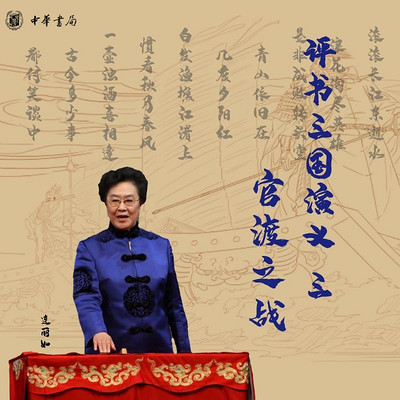 中華書局
滚滚长江东逝水
浪花淘尽英雄
是非成败转头空
青山依旧在
几度夕阳红
白发渔樵江渚上
惯看秋月春风
一壶浊酒喜相逢
古今多少事
都付笑谈中
评书三国演义 三
官渡之战
连丽如